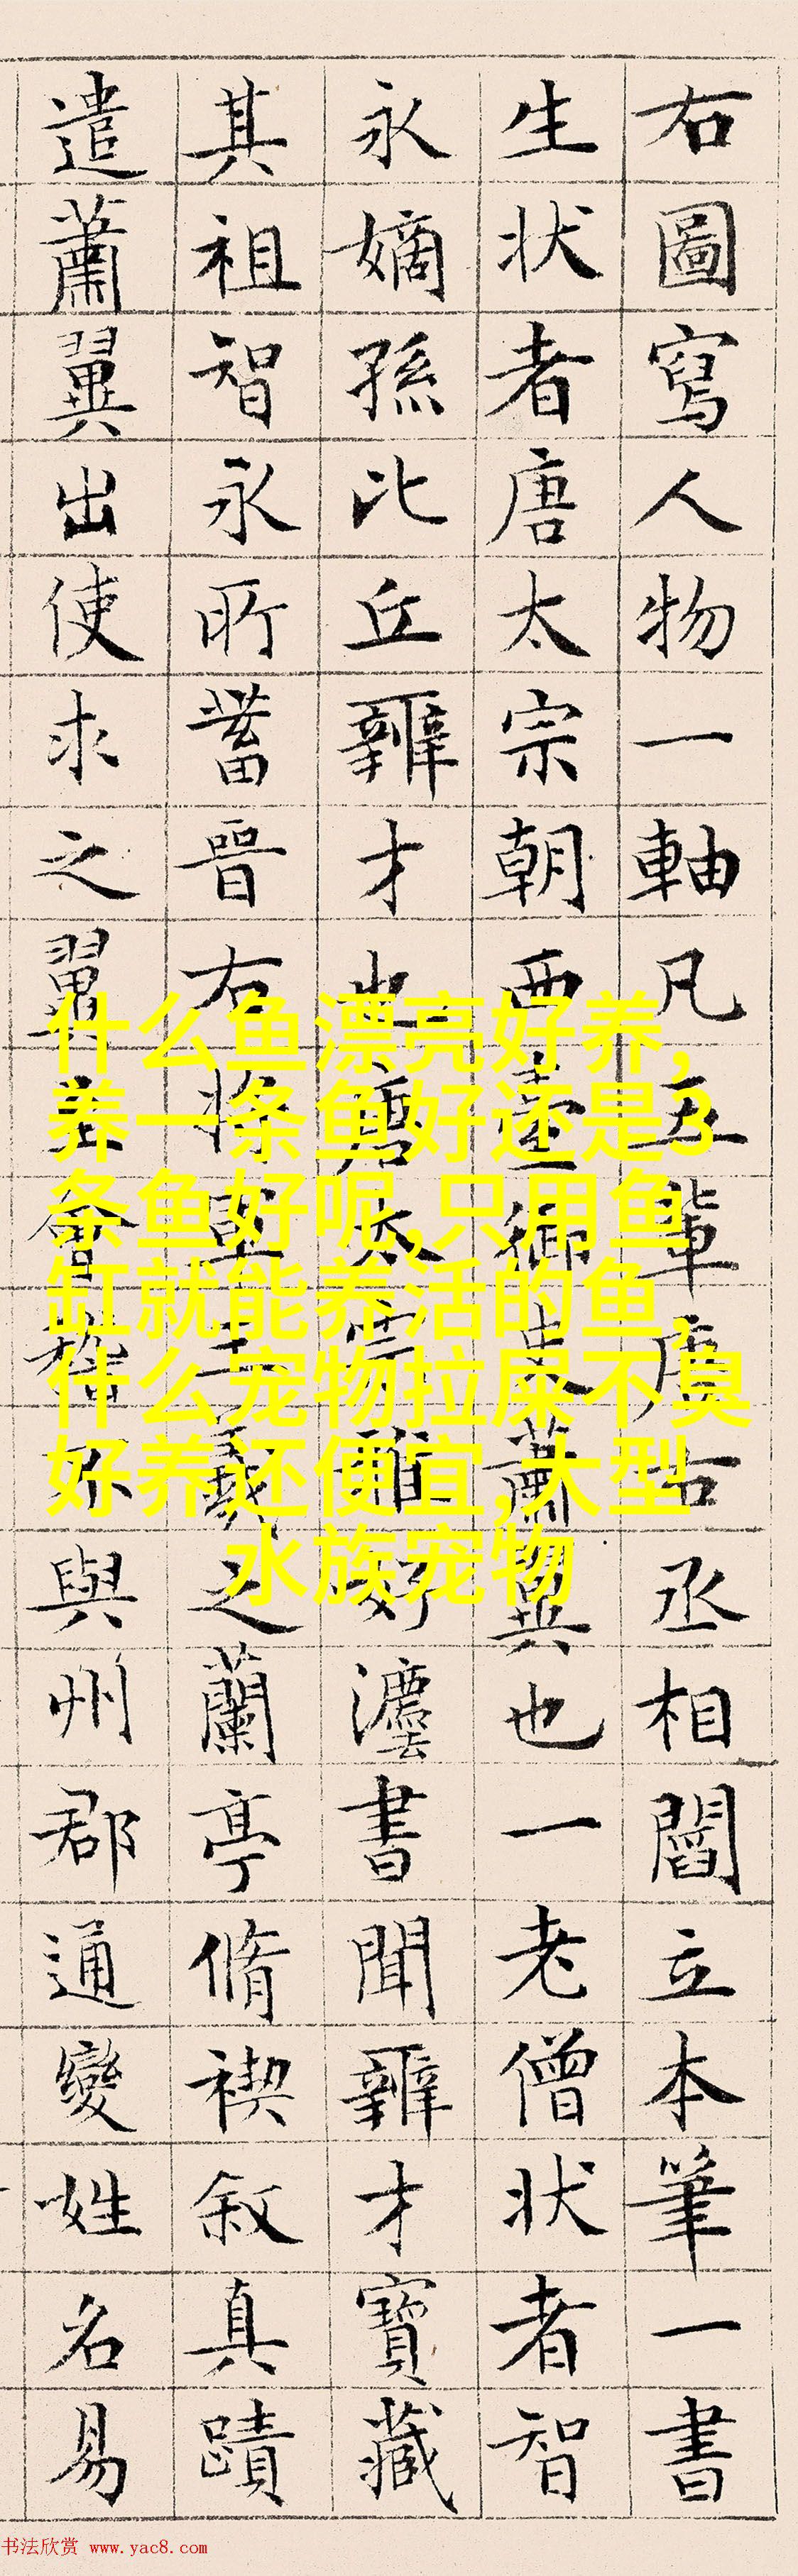 右圖寫人物一軸凡五輩唐右丞相閻立本筆一書
生状者唐太宗朝西臺御史蕭翼也一老僧状者智
永嫡孫比丘辯才也唐太宗雅好灋書聞辯才寶藏
其祖智永所蓄晉右将軍王羲之蘭亭脩禊叙真蹟
遣蕭翼出使求之翼至會稽不與州郡通變姓名易
什么鱼漂亮好养,
养一条鱼好还是3
条鱼好呢,只用鱼
缸就能养活的鱼,
什么宠物拉屎不臭
好养还便宜,大型
水族宠物
书法欣赏 www.yac8.com